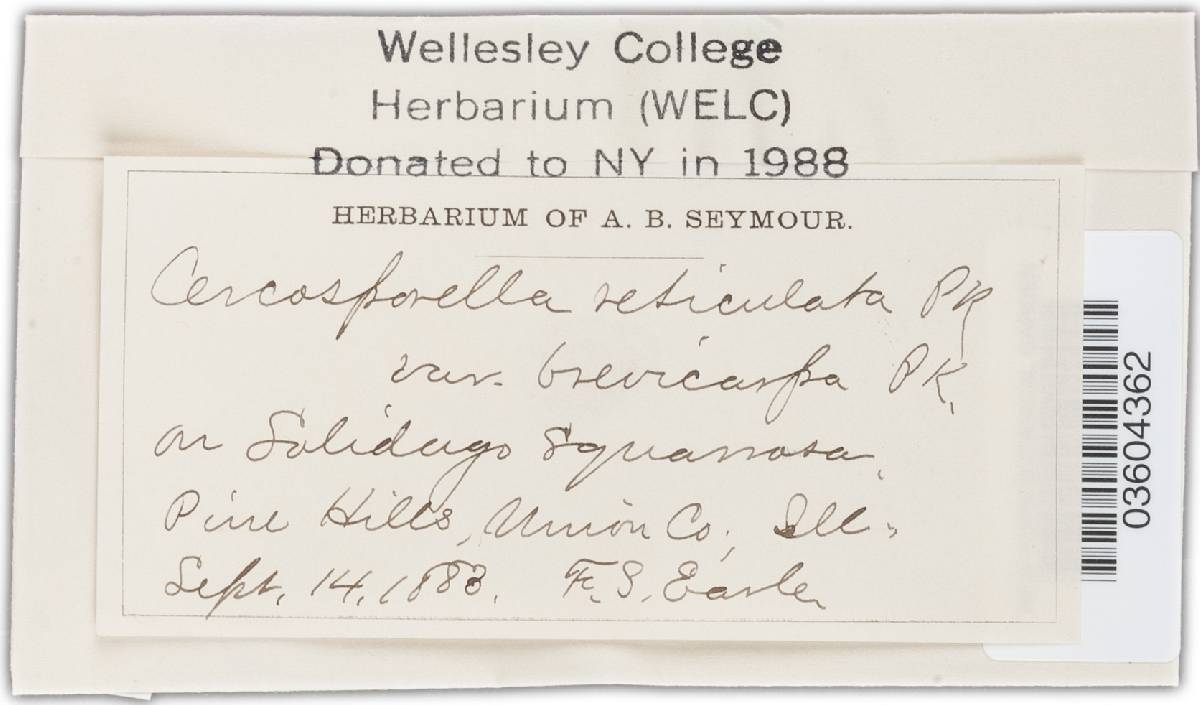 Wellesley College
Herbarium (WELC)
Donated to NY in 1988
HERBARIUM OF A. B. SEYMOUR.
Cercosporella reticulata Pk
var. brevicarpa Pk.
on Solidago squarrosa.
Pine Hills, Union Co., Ill.
Sept. 14, 1883. F. S. Earle
03604362